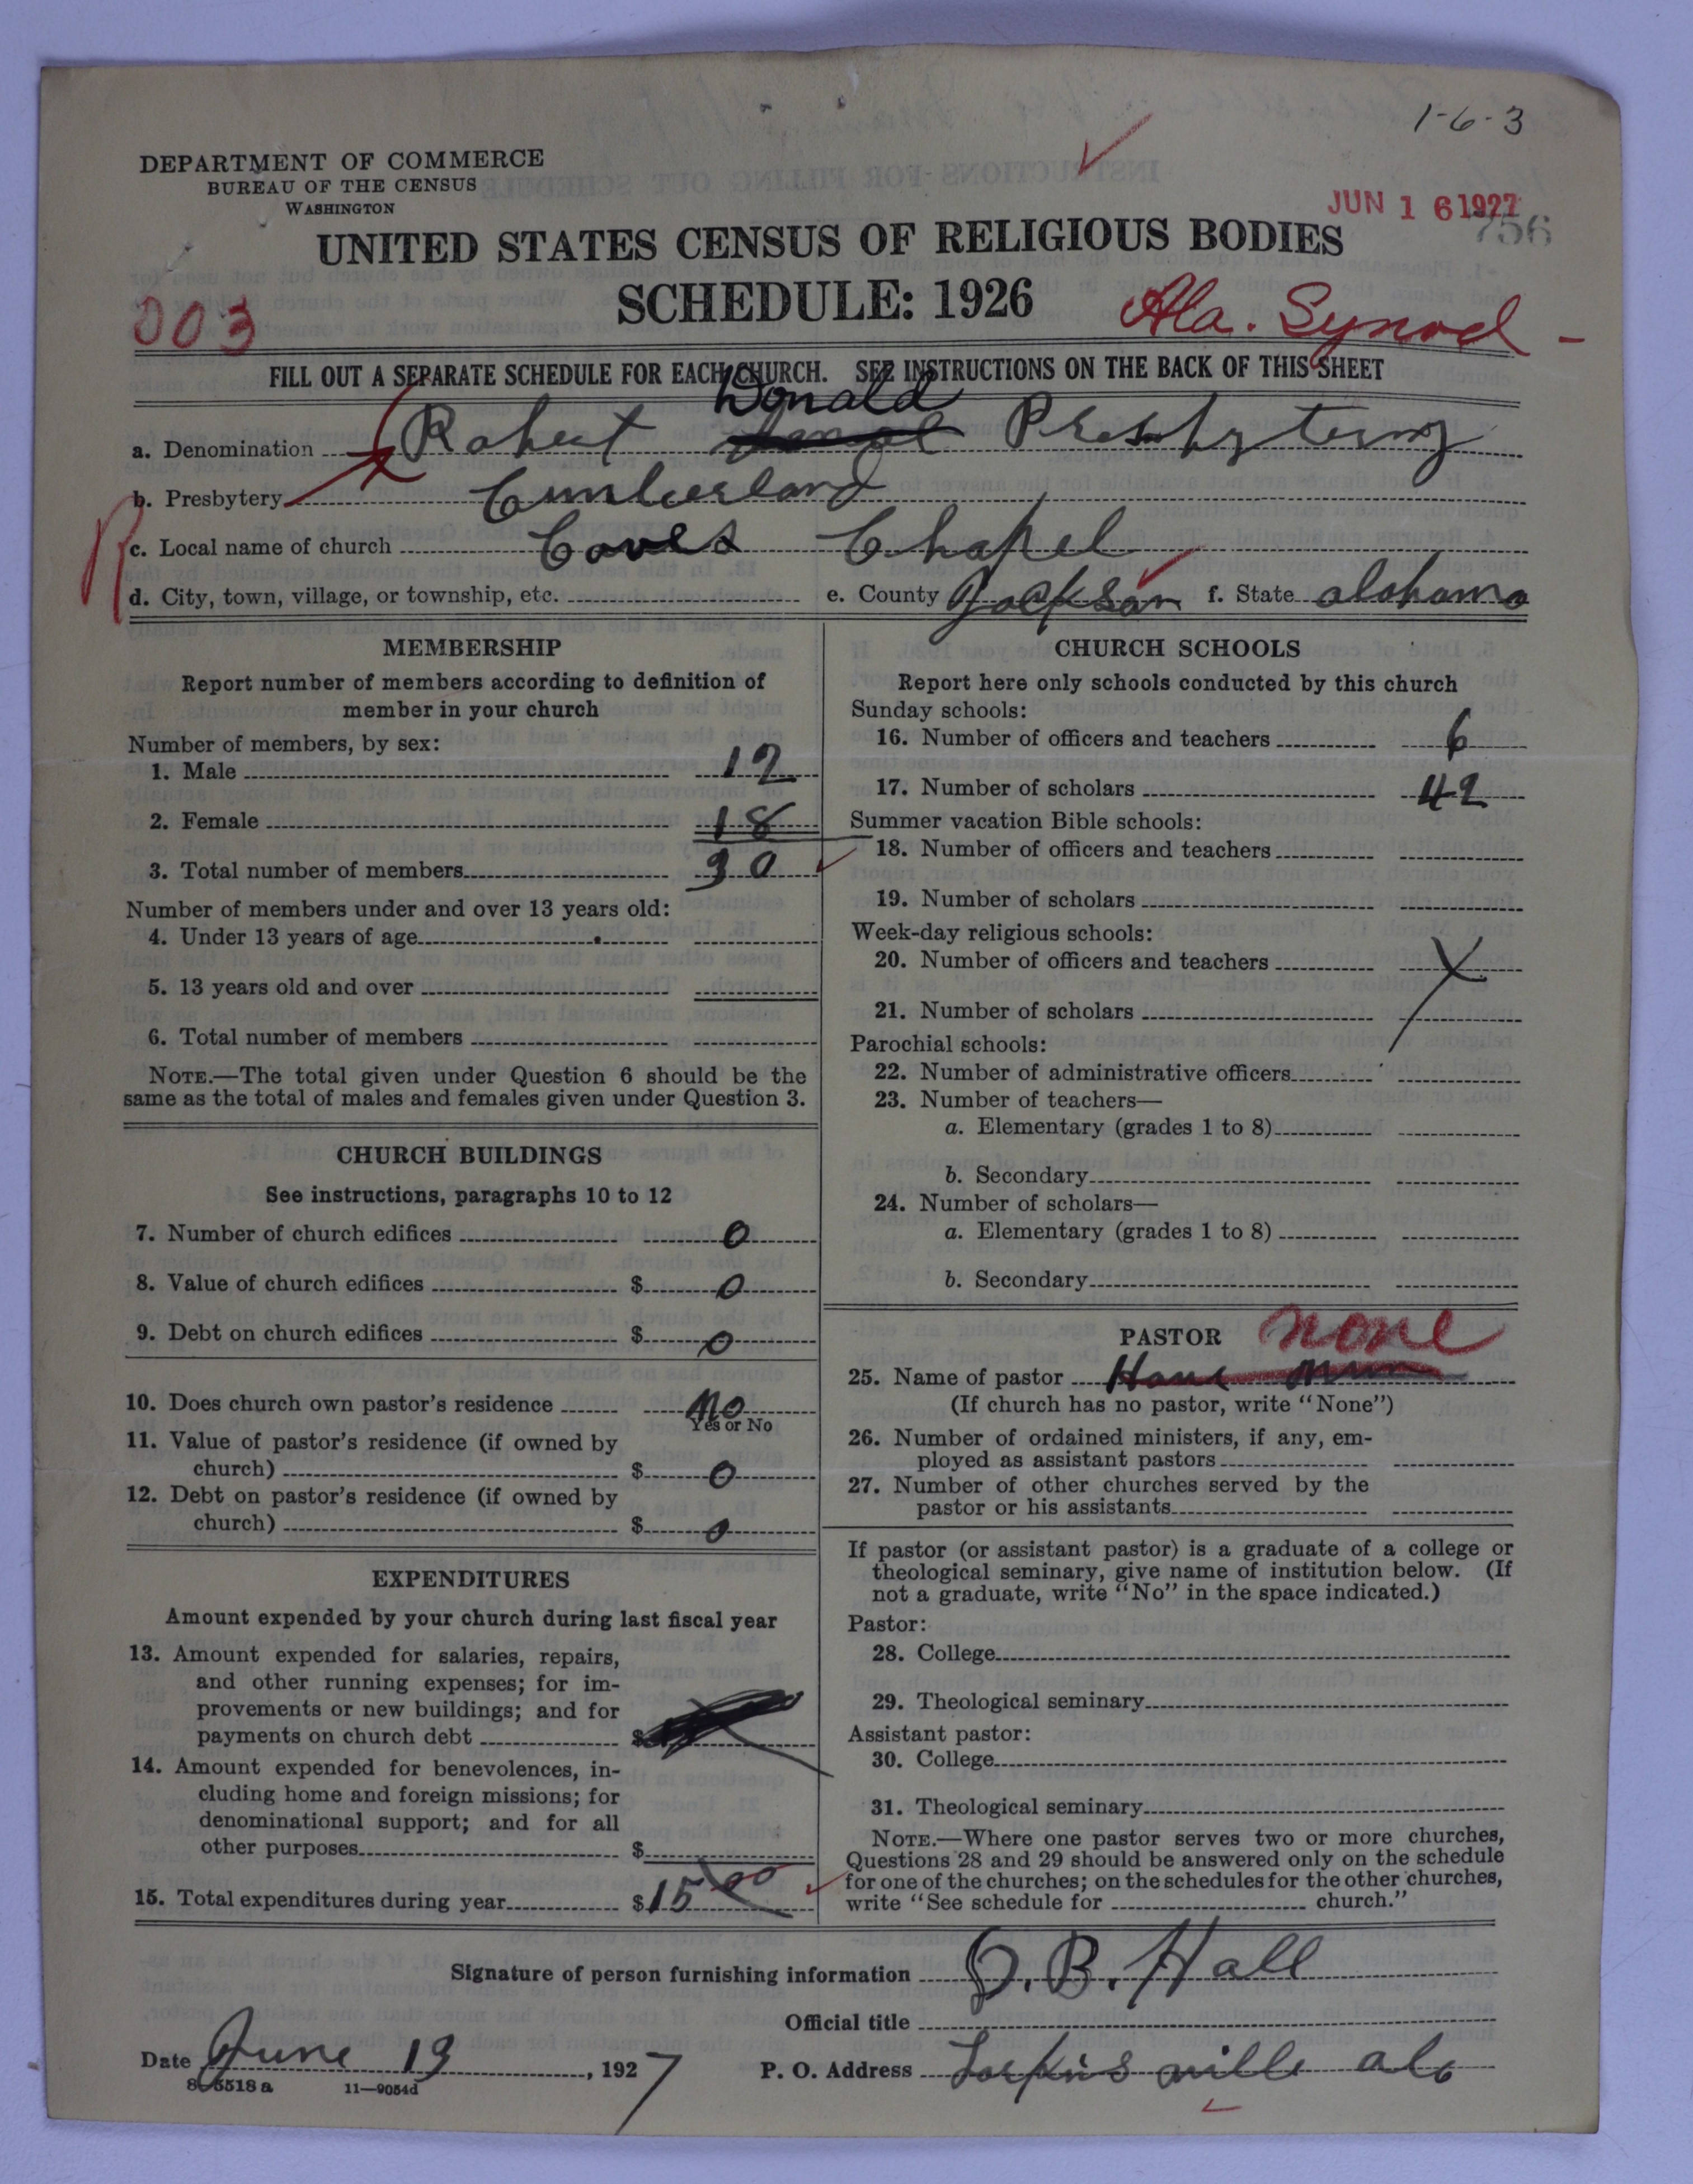 1-6-3
DEPARTMENT OF COMMERCE
BUREAU OF THE CENSUS
WASHINGTON
JUN 16 1927
756
UNITED STATES CENSUS OF RELIGIOUS BODIES
SCHEDULE: 1926
003
Ala. Synod -
FILL OUT A SEPARATE SCHEDULE FOR EACH CHURCH. SEE INSTRUCTIONS ON THE BACK OF THIS SHEET
a. Denomination Robert Donald Presbytery
b. Presbytery Cumberland
R
c. Local name of church Coves Chapel
d. City, town, village, or township, etc. e. County Jackson f. State alabama
MEMBERSHIP
Report number of members according to definition of
member in your church
Number of members, by sex:
1. Male 12
2. Female 18
3. Total number of members 30
Number of members under and over 13 years old:
4. Under 13 years of age
5. 13 years old and over
6. Total number of members
NOTE.—The total given under Question 6 should be the
same as the total of males and females given under Question 3.
CHURCH BUILDINGS
See instructions, paragraphs 10 to 12
7. Number of church edifices 0
8. Value of church edifices $ 0
9. Debt on church edifices $ 0
10. Does church own pastor's residence No
Yes or No
11. Value of pastor's residence (if owned by
church) $ 0
12. Debt on pastor's residence (if owned by
church) $ 0
EXPENDITURES
Amount expended by your church during last fiscal year
13. Amount expended for salaries, repairs,
and other running expenses; for im-
provements or new buildings; and for
payments on church debt $
14. Amount expended for benevolences, in-
cluding home and foreign missions; for
denominational support; and for all
other purposes $
15. Total expenditures during year $ 15 00
CHURCH SCHOOLS
Report here only schools conducted by this church
Sunday schools:
16. Number of officers and teachers 6
17. Number of scholars 42
Summer vacation Bible schools:
18. Number of officers and teachers
19. Number of scholars
Week-day religious schools:
20. Number of officers and teachers
21. Number of scholars
Parochial schools:
22. Number of administrative officers
23. Number of teachers—
a. Elementary (grades 1 to 8)
b. Secondary
24. Number of scholars—
a. Elementary (grades 1 to 8)
b. Secondary
PASTOR none
25. Name of pastor
(If church has no pastor, write "None")
26. Number of ordained ministers, if any, em-
ployed as assistant pastors
27. Number of other churches served by the
pastor or his assistants
If pastor (or assistant pastor) is a graduate of a college or
theological seminary, give name of institution below. (If
not a graduate, write "No" in the space indicated.)
Pastor:
28. College
29. Theological seminary
Assistant pastor:
30. College
31. Theological seminary
NOTE.—Where one pastor serves two or more churches,
Questions 28 and 29 should be answered only on the schedule
for one of the churches; on the schedules for the other churches,
write "See schedule for church."
Signature of person furnishing information J. B. Hall
Official title
Date June 13, 1927 P. O. Address Larkinsville ala
8-5518 a 11—9054d